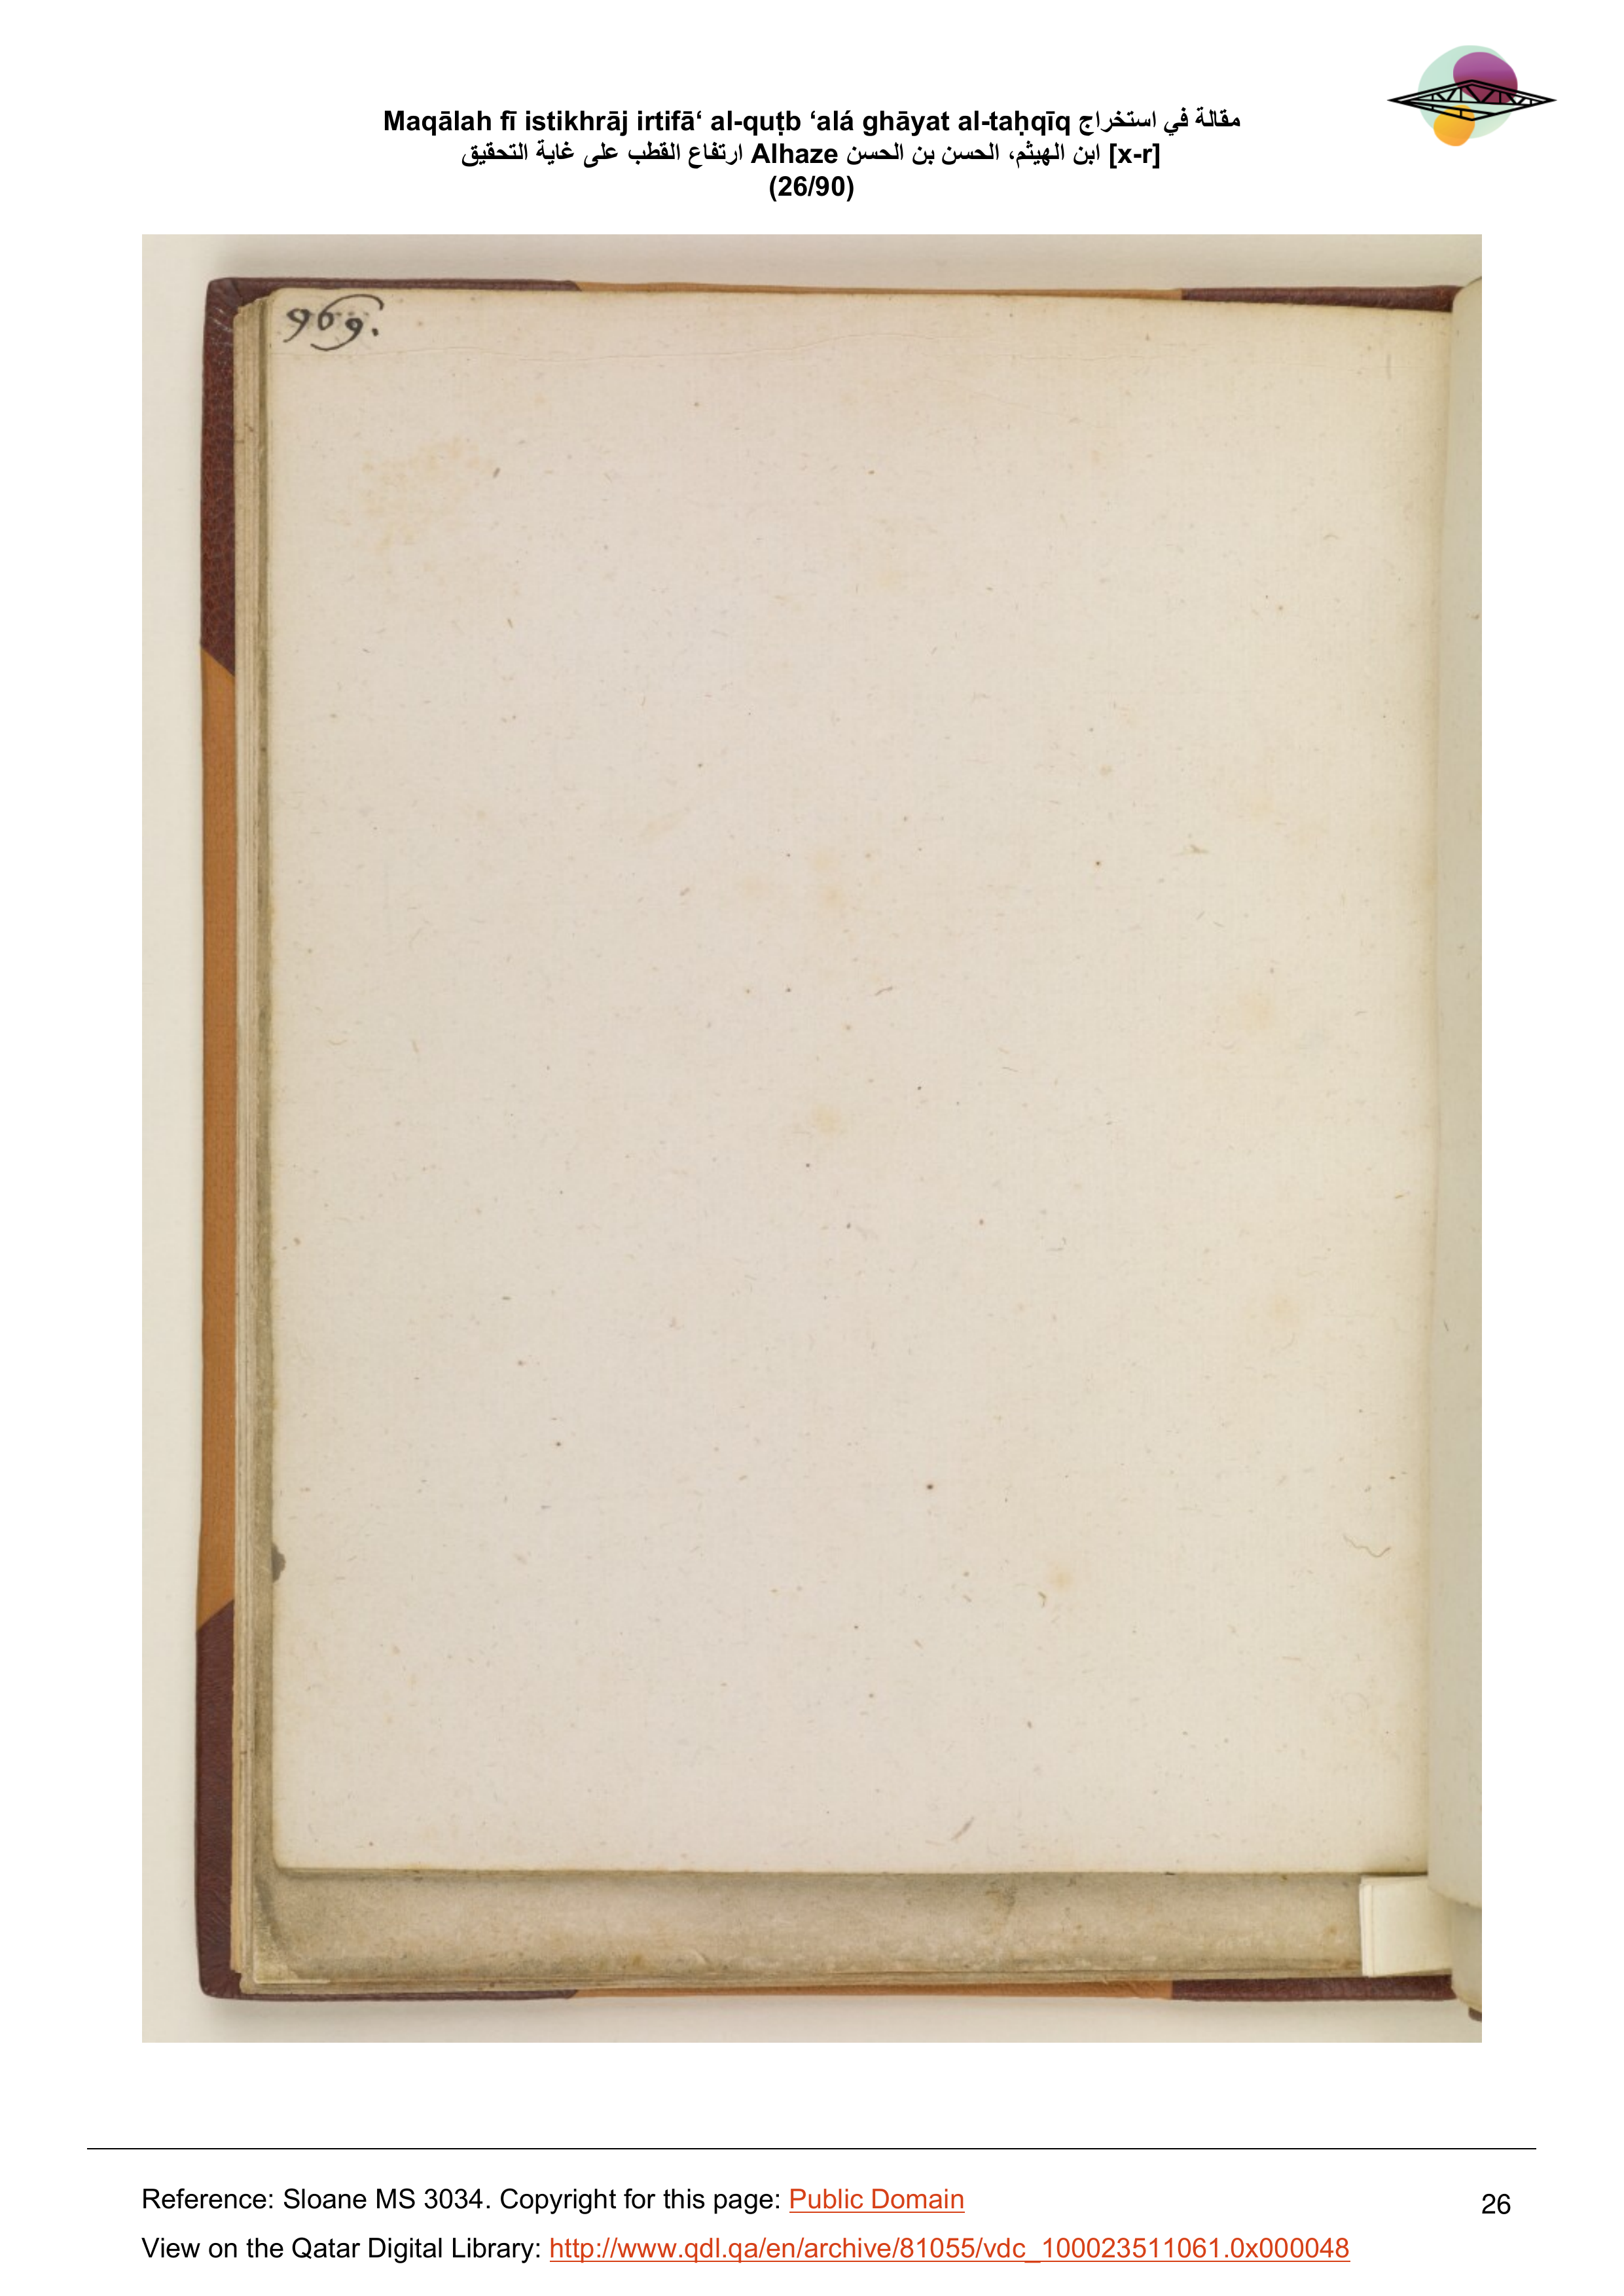 Maqālah fī istikhrāj irtifā‘ al-quṭb ‘alá ghāyat al-taḥqīq مقالة في استخراج
ارتفاع القطب على غاية التحقيق Alhaze ابن الهيثم، الحسن بن الحسن [x-r]
(26/90)
969.
Reference: Sloane MS 3034. Copyright for this page: Public Domain
26
View on the Qatar Digital Library: http://www.qdl.qa/en/archive/81055/vdc_100023511061.0x000048